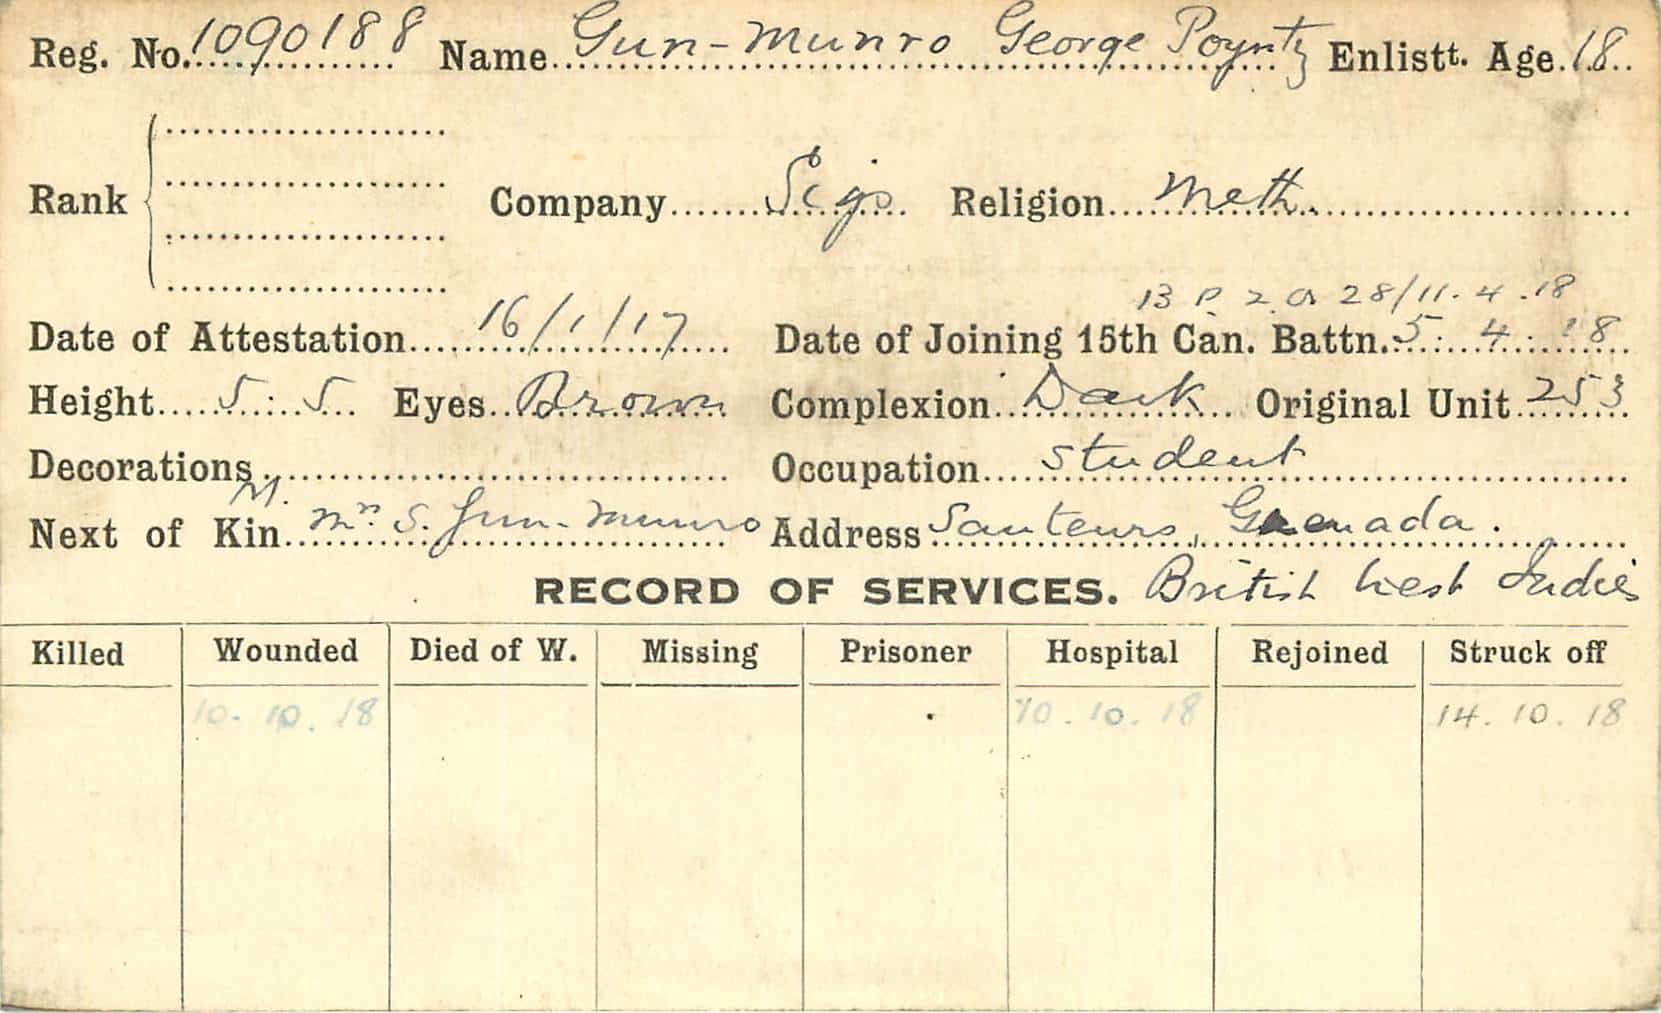 Reg. No. 1090188 Name Gun-Munro George Poyntz Enlistt. Age. 18
Rank Company Sigs Religion Meth.
13 P. 2. O 28/11.4.18
Date of Attestation 16/1/17 Date of Joining 15th Can. Battn. 5.4.18
Height 5.5 Eyes Brown Complexion Dark Original Unit 253
Decorations Occupation student
Next of Kin S. Gun-Munro Address Sauteurs, Grenada.
RECORD OF SERVICES. British West Indies
Killed Wounded Died of W. Missing Prisoner Hospital Rejoined Struck off
10.10.18 10.10.18 14.10.18